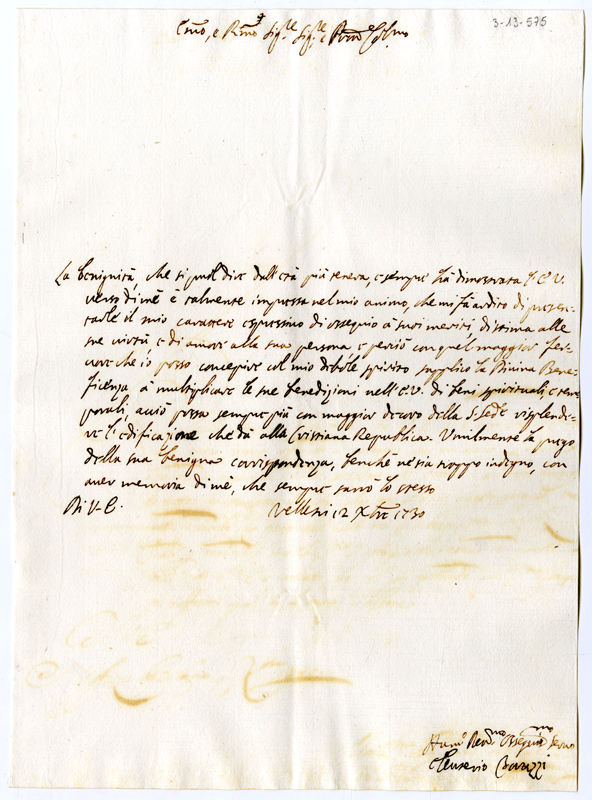 3-13-575
Emo, e Rmo Sigre Sigre Prone Colmo
La benignità, che si può dire dall'età più tenera, e sempre hà dimostrata l'E. V.
verso di mè è talmente impressa nel mio animo, che mi fà ardito di presen-
tarle il mio carattere espressivo di ossequio à suoi meriti, di stima alle
sue virtù e di amore alla sua persona e perciò con quel maggior fer-
vore che io posso concepire col mio debole spirito supplico la Divina Bene-
ficenza à multiplicare le sue benedizioni nell'E. V. di beni spirituali, e tem-
porali, acciò possa sempre più con maggior decoro della S. Sede risplende-
re l'edificazione che dà alla Cristiana Republica. Umilmente la prego
della sua benigna corrispondenza, benchè nè sia troppo indegno, con
aver memoria di mè, che sempre sarò lo stesso
Di V. E. Velletri 12 Xbre 1730
Humo Devmo Ossequmo Servo
Eleuterio Borazzi